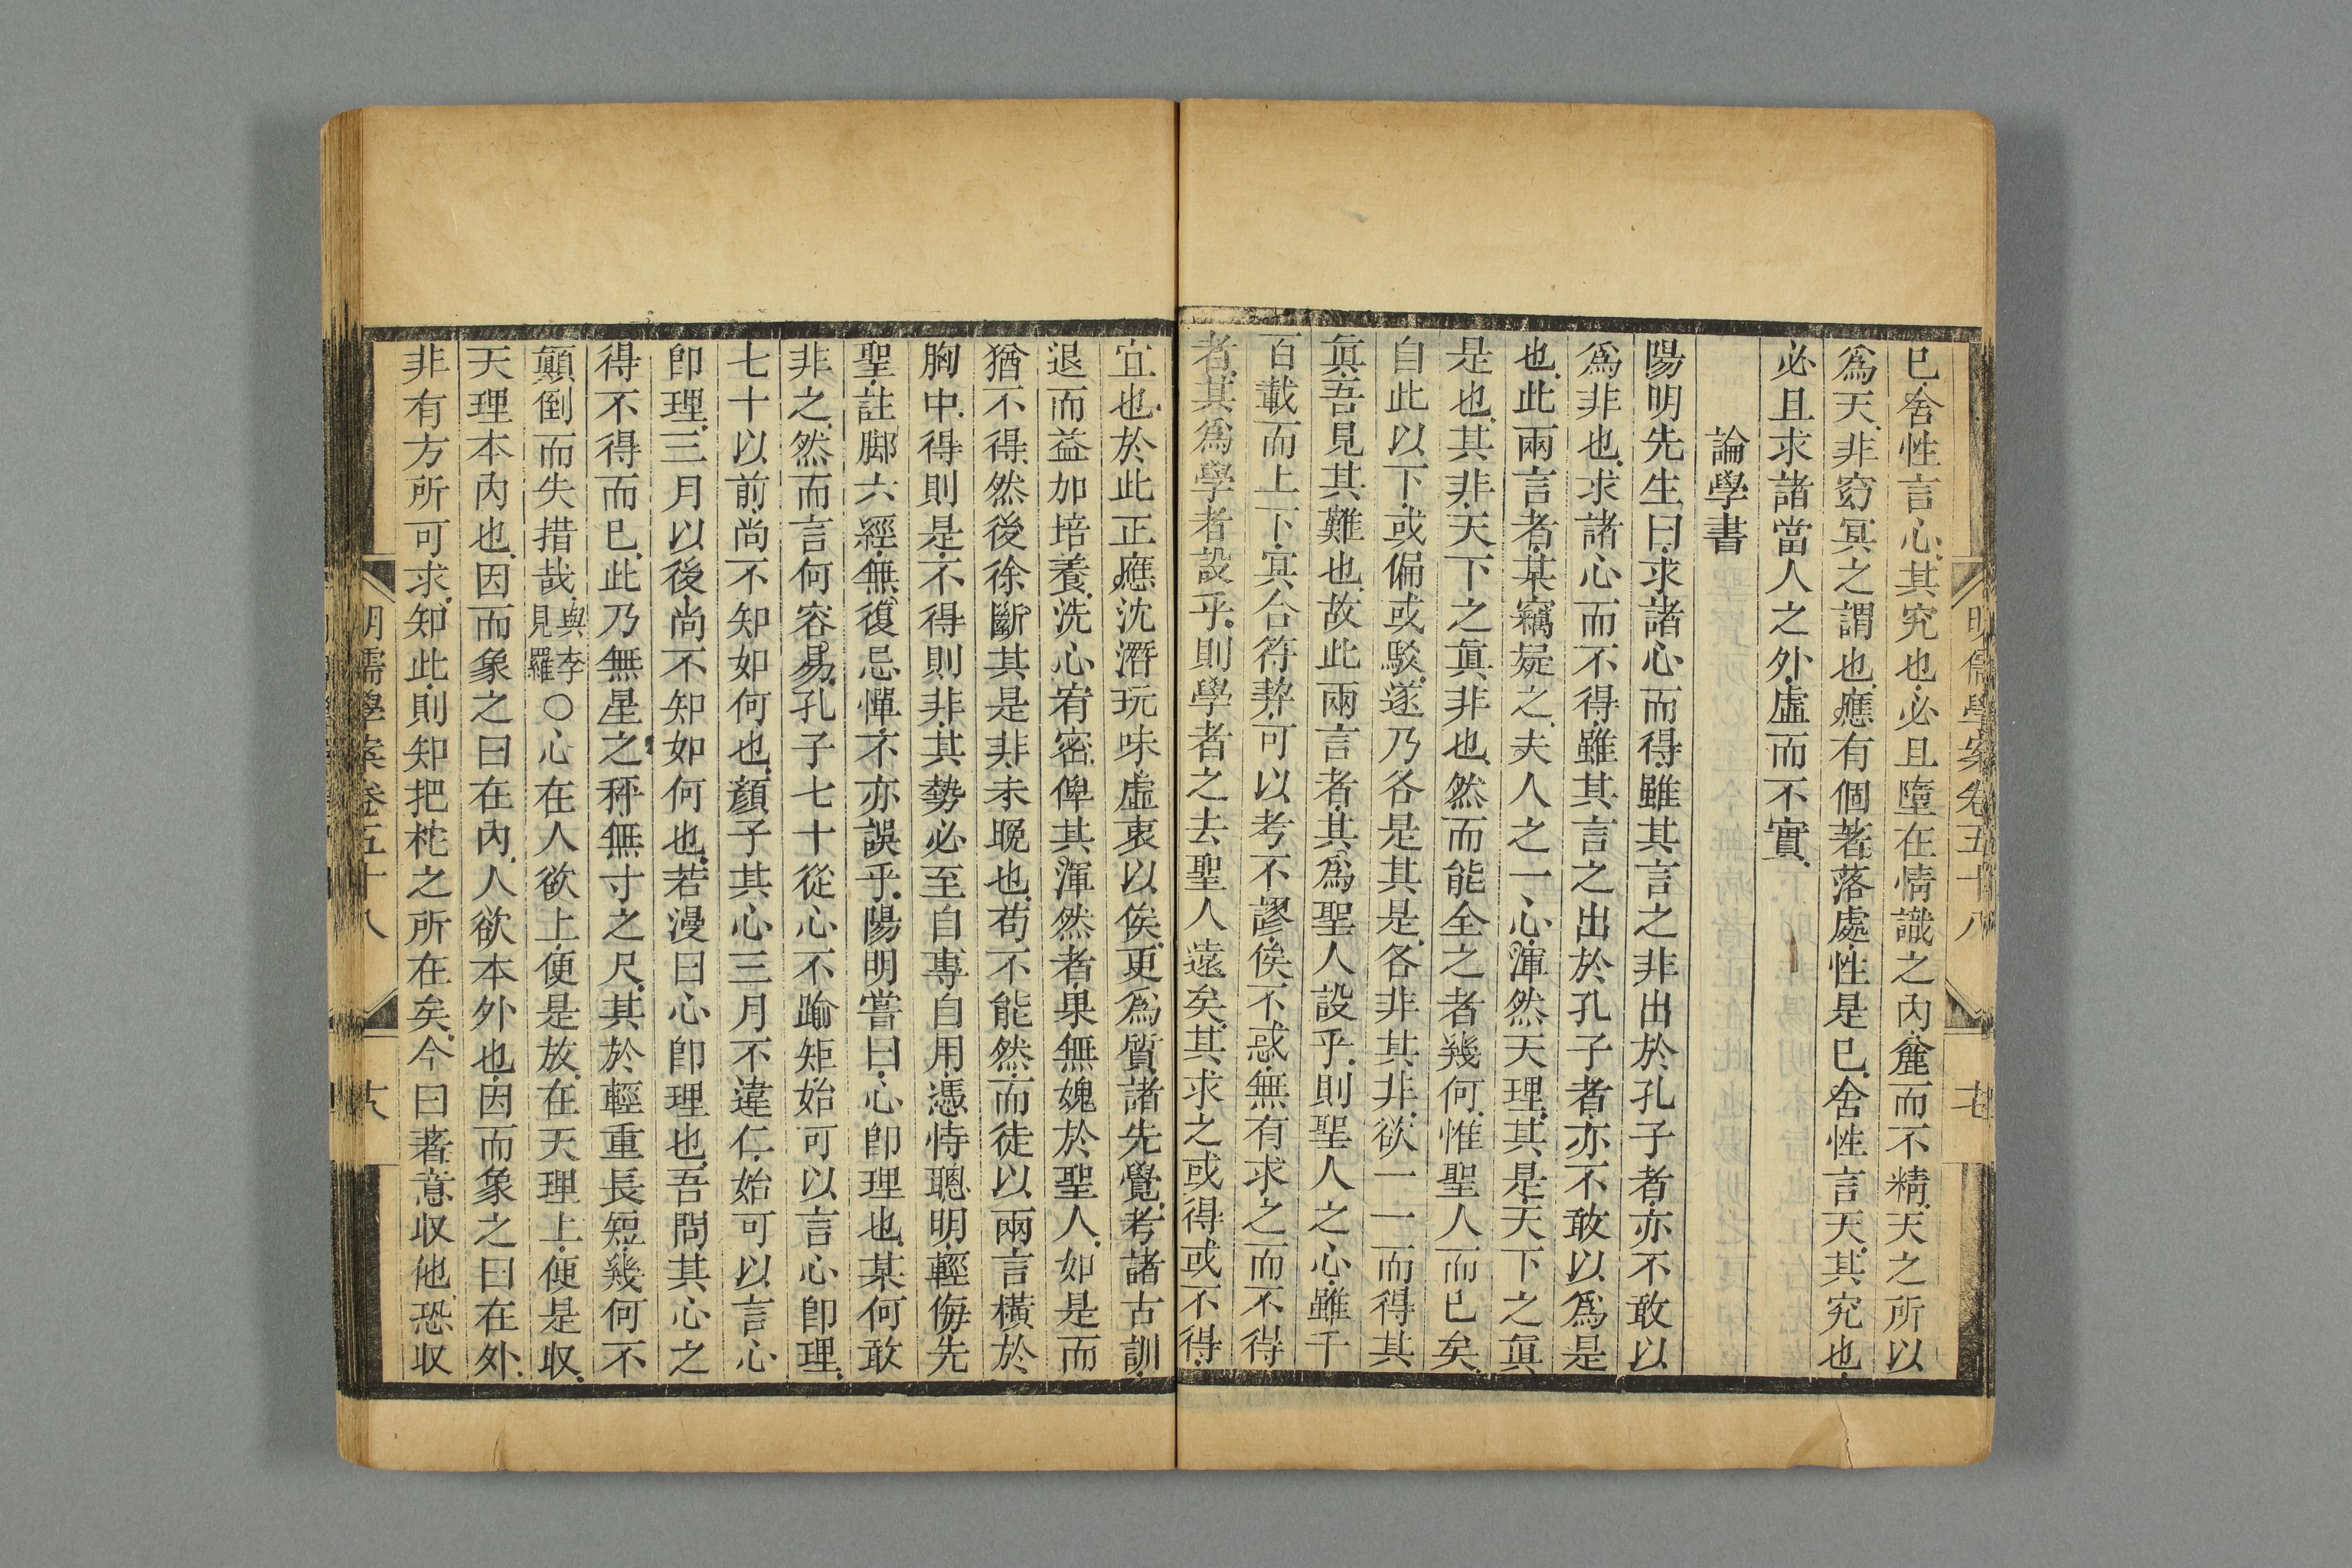 已舍性言心其究也必且墮在情識之內麄而不精天之所以
爲天非窈冥之謂也應有個著落處性是已舍性言天其究也
必且求諸當人之外虛而不實
論學書
陽明先生曰求諸心而得雖其言之非出於孔子者亦不敢以
爲非也求諸心而不得雖其言之出於孔子者亦不敢以爲是
也此兩言者某竊疑之夫人之一心渾然天理其是天下之眞
是也其非天下之眞非也然而能全之者幾何惟聖人而已矣
自此以下或偏或駁遂乃各是其是各非其非欲一一而得其
眞吾見其難也故此兩言者其爲聖人設乎則聖人之心雖千
百載而上下冥合符契可以考不謬俟不惑無有求之而不得
者其爲學者設乎則學者之去聖人遠矣其求之或得或不得
宜也於此正應沈潛玩味虛衷以俟更爲質諸先覺考諸古訓
退而益加培養洗心宥密俾其渾然者果無媿於聖人如是而
猶不得然後徐斷其是非未晚也苟不能然而徒以兩言橫於
胸中得則是不得則非其勢必至自專自用憑恃聰明輕侮先
聖註脚六經無復忌憚不亦誤乎陽明嘗曰心卽理也某何敢
非之然而言何容易孔子七十從心不踰矩始可以言心卽理
七十以前尚不知如何也顏子其心三月不違仁始可以言心
卽理三月以後尚不知如何也若漫曰心卽理也吾問其心之
得不得而已此乃無星之秤無寸之尺其於輕重長短幾何不
顚倒而失措哉與李見羅○心在人欲上便是放在天理上便是收
天理本內也因而象之曰在內人欲本外也因而象之曰在外
非有方所可求知此則知把柁之所在矣今曰著意收他恐收
明儒學案卷五十八
十七
明儒學案卷五十八
十八